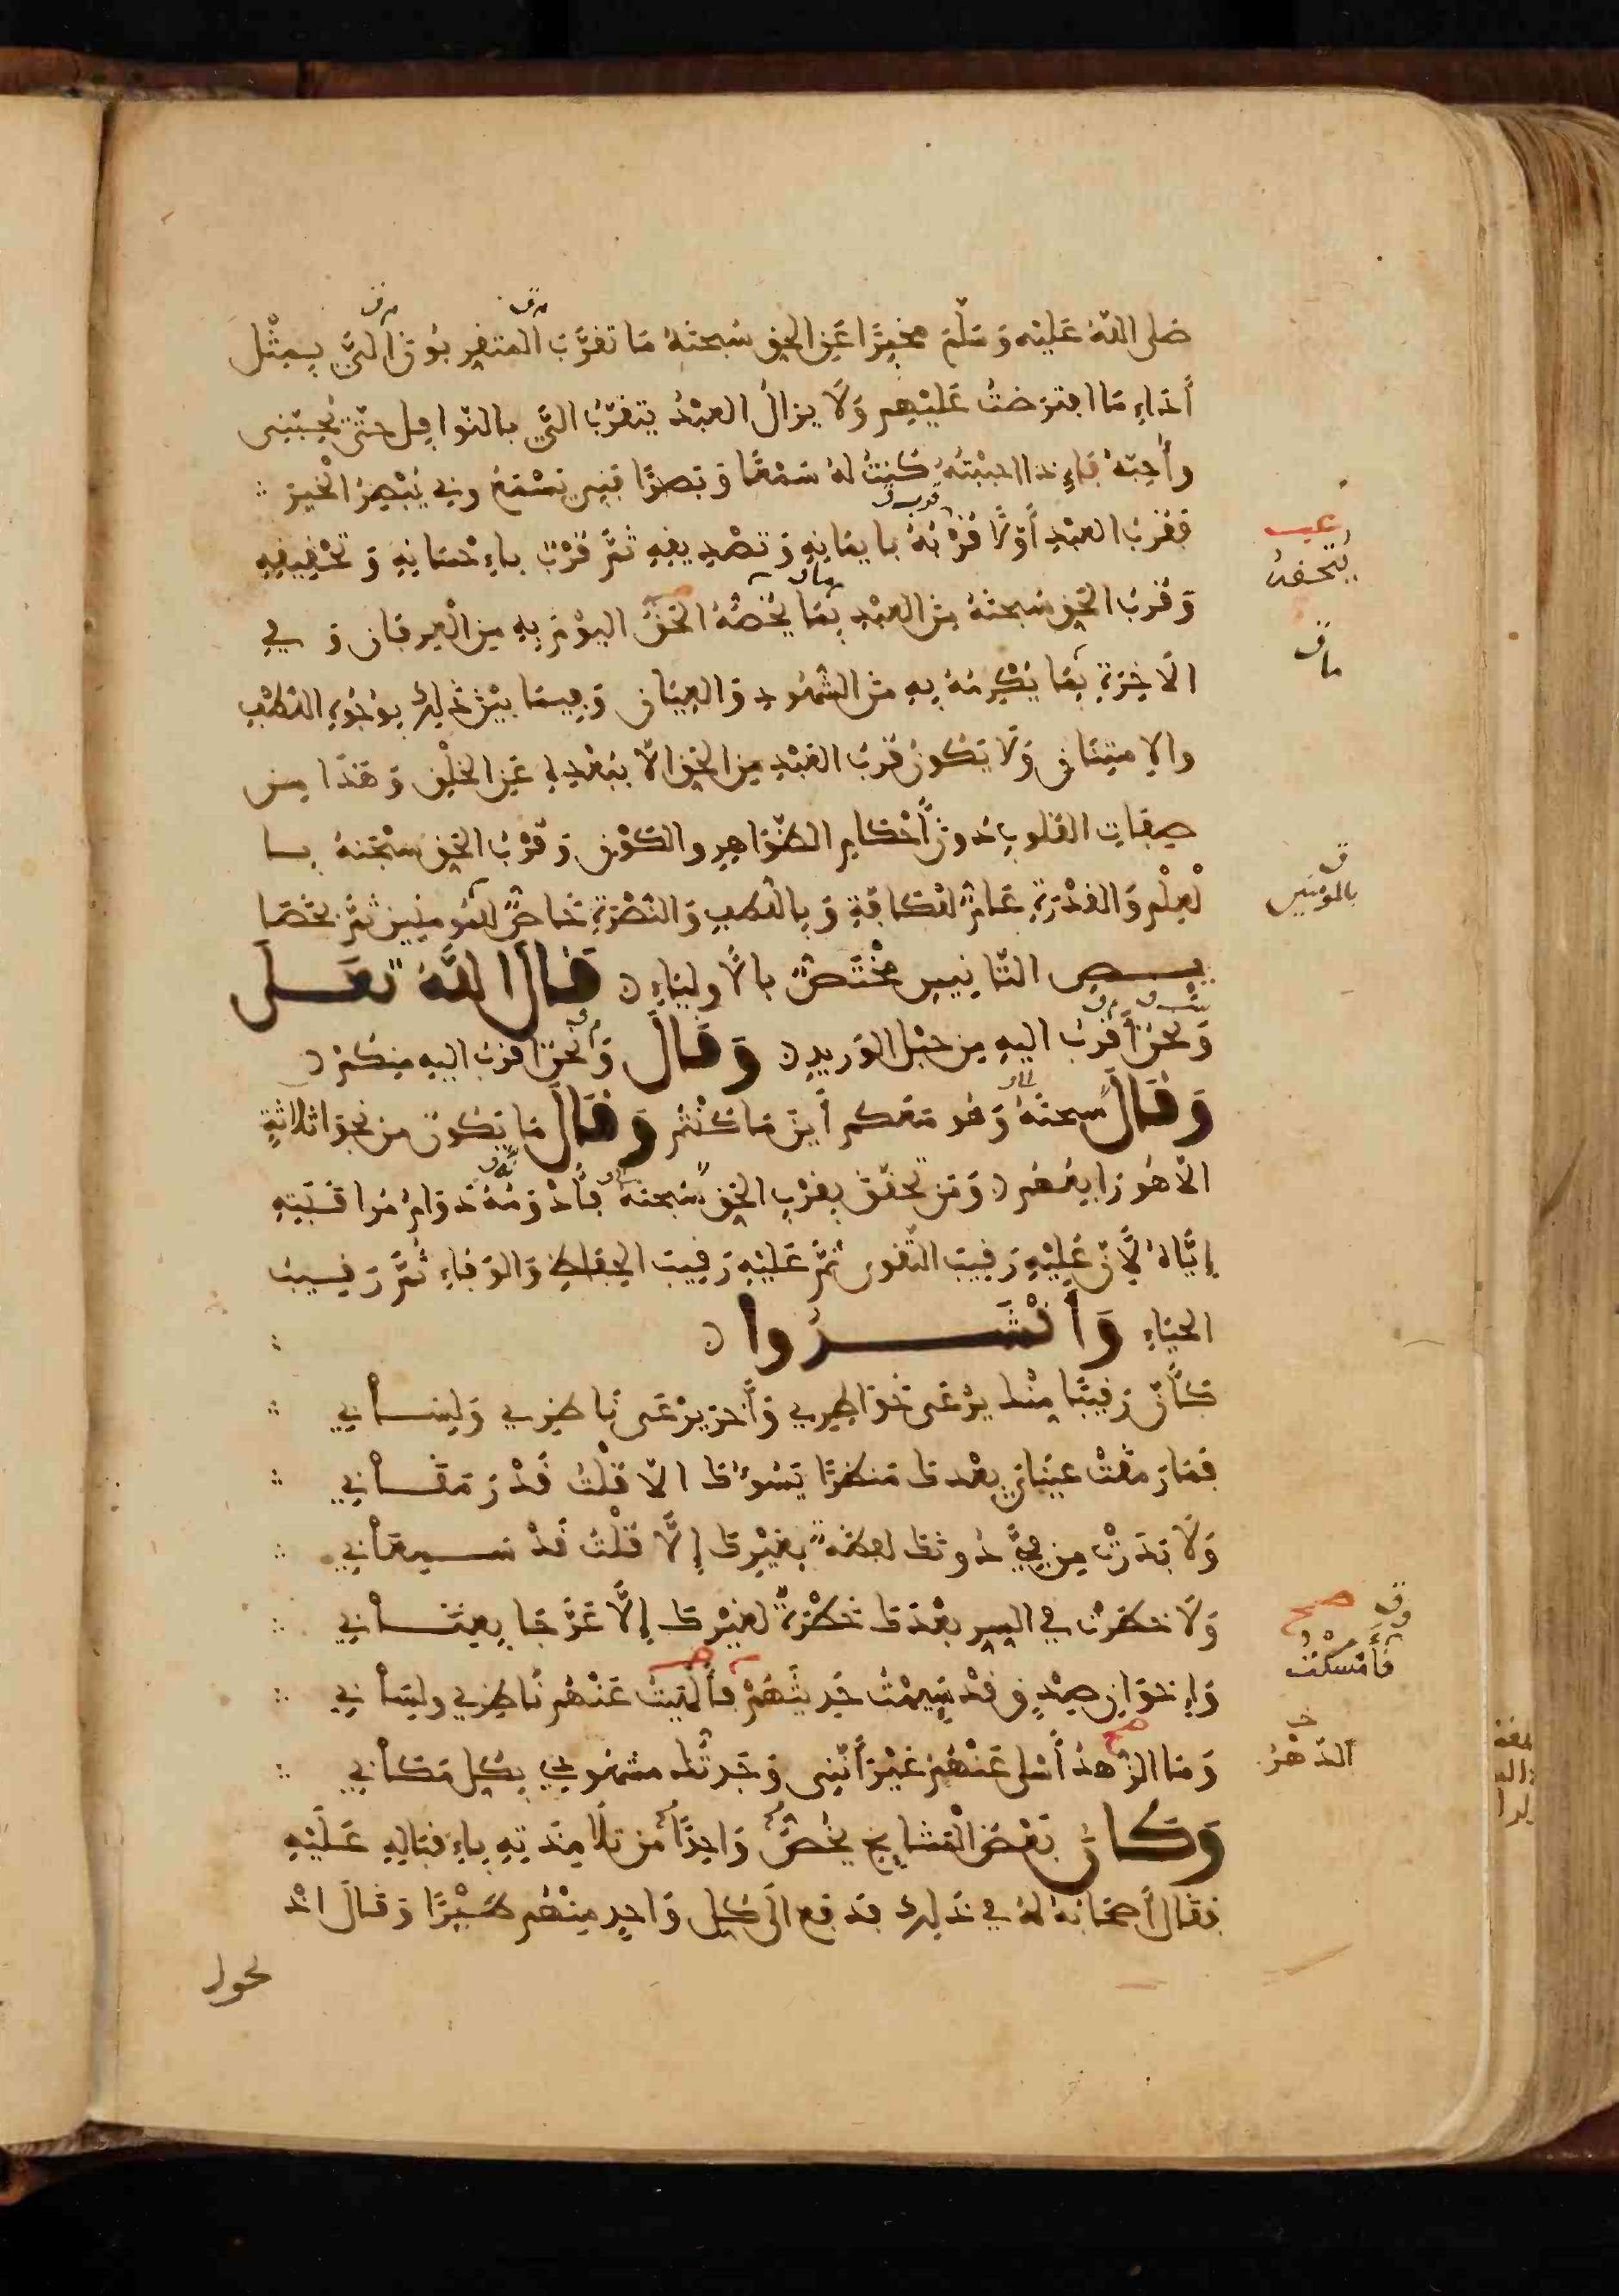 صَلى اللهُ عَلَيْهِ وَسَلّمَ مخبِرًا عَنِ الحقِ سُبحنَهُ مَا تَقرَّبَ المتقربُونَ اليَّ بِمِثْلِ
أَدَاءِ مَا افترضتُ عَلَيْهِم وَلَا يزالُ العبْدُ يتقرّبُ اليَّ بالنّوافِل حتّى يُحِبّنِى
وأُحِبّهُ فإِذا احببْتُهُ كُنتُ لهُ سَمْعًا وَبَصرًا فَبِى يَسْمَعُ وبِي يُبْصِرُ الْخبرَ
فَقُربُ العبْدِ أوّلًا قُرْبُهُ بايمانِهِ وَتَصْدِيقِهِ ثمَّ قُرْبٌ بإِحْسَانِهِ وَتَحْقِيقِهِ
وَقُربُ الحَقِ سُبحنهُ مِنَ العبْدِ بِمَا يَخُصُّهُ الحَقُّ اليوْمَ بِهِ مِنَ الْعِرفَانِ وَفِي
الآخِرَةِ بمَا يُكْرِمُهُ بِهِ منَ الشهُودِ وَالعِيَانِ وَفِيمَا بَيْنَ ذَلِكَ بِوُجُوهِ اللطْفِ
والِامتِنَانِ وَلَا يَكُونُ قُربُ العَبْدِ مِنَ الحَقِ الّا بِبُعْدِهِ عَنِ الخَلْقِ وَهَذَا مِنْ
صِفَاتِ القلوبِ دُونَ أَحْكَامِ الظّوَاهِرِ والكَوْنِ وَقُرْبُ الحَقِ سُبْحَنهُ بِا
لْعِلْمِ وَالقدْرَةِ عَامٌّ للْكَافّةِ وَبِاللطفِ وَالنّصْرَةِ خَاصٌّ للمُومِنِينَ ثمَّ بخَصَا
يِصِ التّانِيسِ مُخْتَصٌّ بالأولِيَاءِ قَالَ اللَّهُ تعَلَى
وَنَحْنُ أقْرَبُ اليهِ مِن حَبْلِ الوَرِيدِ وَقَالَ وَنَحْنُ اقرَبُ اليهِ مِنكُمْ
وَقَالَ سُبحنَهُ وَهُو مَعَكم أَينَ مَا كُنْتُم وَقَالَ مَا يَكُونُ مِن نجوَا ثلاثةٍ
الّا هُو رَابِعُهُم وَمَن تحقّقَ بِقرْبِ الحَقِ سُبحنه فَأدْوَنُهُ دَوَامُ مُرَاقَبَتِهِ
إِيَّاهُ لِأنّ عَلَيْهِ رَقِيبَ التّقوى ثمَّ عَلَيْهِ رَقِيبَ الحِفَاظِ وَالوَفَاءِ ثُمَّ رَقِيبُ
الحيَاءِ وَأَنْشَدُوا
كَأنّ رَقِيبًا مِنْكَ يرْعَى خَوَاطِرِي وَأَخرَ يرْعَى نَاظِرِي وَلِسَانِي
فمَا رَمقتْ عَيْنَايَ بعْدكَ مَنظرًا يَسُوءُكَ الّا قُلْتُ قَدْ رَمَقَانِي
وَلَا بَدَرَتْ مِن فِيَّ دُونَكَ لفظةٌ بِغَيْرِكَ إِلَّا قُلْتُ قَدْ سَمِعَانِي
وَلَا خطَرَتْ في السِرِ بعْدَكَ خَطْرَةٌ لغَيْرِكَ إِلَّا عَرَّجَا بِعِنَانِي
وَإِخوَانِ صِدْقٍ قَدْ سَئِمْتُ حَدِيثَهُمْ فأَلْمَيتُ عَنْهُم نَاظِرِي ولِسَانِي
وَمَا الزُّهدُ أسْلى عَنْهُمُ غَيْرَ أنّنِى وَجَدْتُكَ مشهُودِي بِكلِ مَكَانِي
وَكَانَ بَعْضُ الْمَشَايِخِ يخُصُّ وَاحِدًا مِن تلَامِذَتِهِ بإِقبَالِهِ عَلَيْهِ
فقَالَ أصْحَابُهُ لهُ في ذَلِكَ فدَفعَ الَى كلِ وَاحِدٍ مِنْهُم طَيْرًا وَقَالَ اذْ
بحوا
يُتْحفهُ
بالمؤمنين
فَأَمْسَكْتُ
الدّهْرُ